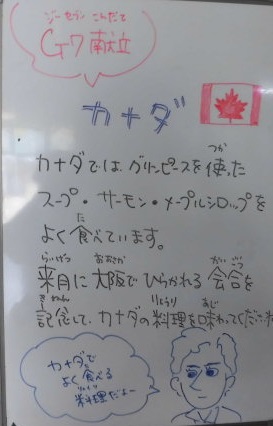 ジーセブン こんだて
G7献立
カナダ
カナダでは、グリーンピースを使った
スープ・サーモン・メープルシロップを
よく食べています。
来月に大阪でひらかれる会合を
記念して、カナダの料理を味わってください
カナダで
よく食べる
料理だよー